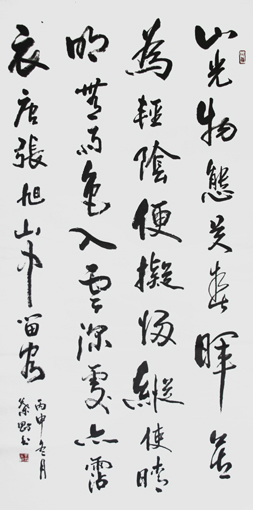 山光物態弄春暉莫
為輕陰便擬歸縱使晴
明無雨色入雲深處亦霑
衣唐張旭山中留客
丙申冬月